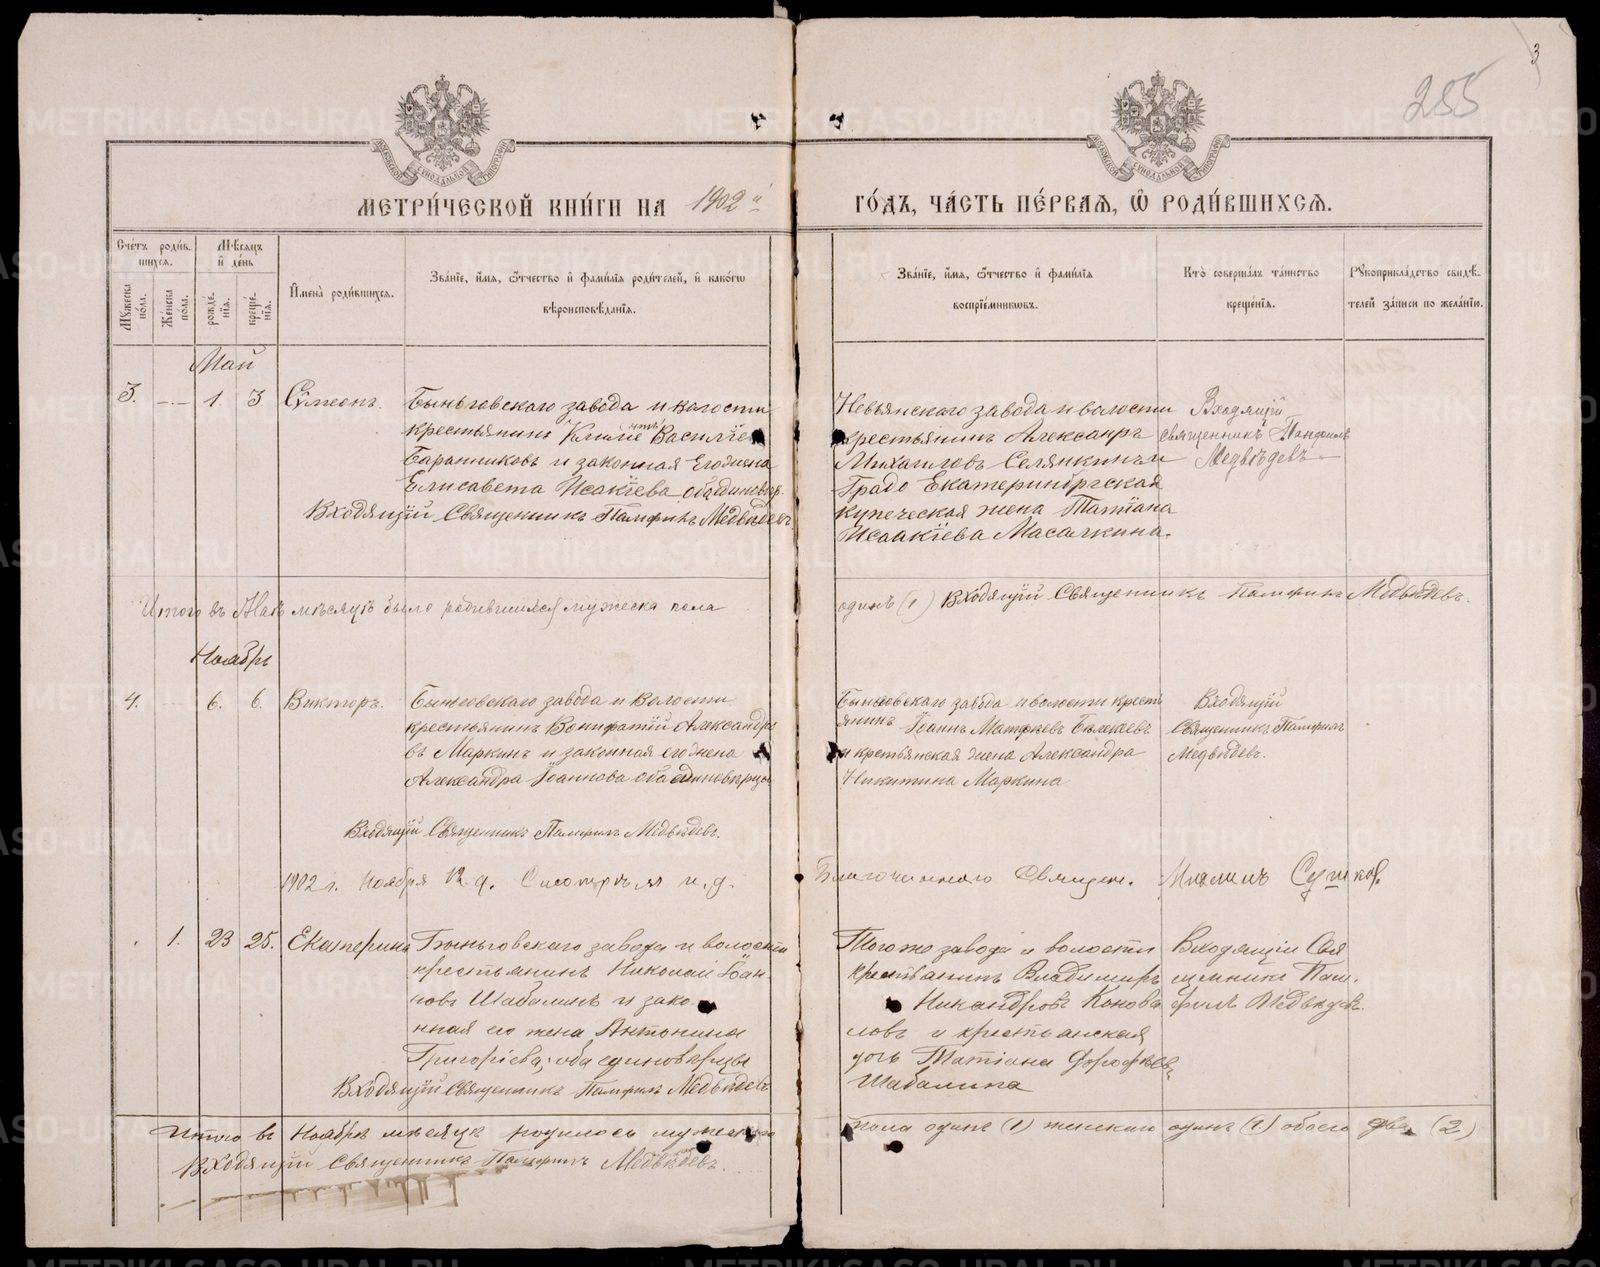 3
255
МЕТРИ́ЧЕСКОЙ КНИ́ГИ НА 1902 й ГО́ДЪ, ЧА́СТЬ ПЕ́РВАЯ, Ѡ҆ РОДИ́ВШИХСѦ.
Сче́тъ роди́в-
шихсѧ.
Мѣсѧцъ
и҆ де́нь
Мꙋжеска по́ла.
Же́нска пола.
рожде́-
нїѧ.
креще́-
нїѧ.
И҆мена̀ роди́вшихсѧ.
Зва́нїе, и҆́мѧ, ѻ҆́тчество и҆ фами́лїѧ роди́телей, и҆ како́гѡ
вѣроисповѣ́данїѧ.
Зва́нїе, и҆́мѧ, ѻ҆́тчество и҆ фами́лїѧ
воспрїе́мникѡвъ.
Кто̀ соверша́лъ та́инство
креще́нїѧ.
Рꙋкоприкла́дство свидѣ́-
телей за́писи по жела́нїю.
Май
3. — 1. 3 Сѵмеонъ.
Быньговскаго завода и волости
крестьянинъ Василїев
Баранниковъ и законная его жена
Елисавета Исакїева оба единовѣр.
Входящїй Священникъ Памфилъ Медвѣдевъ
Невьянскаго завода и волости
крестьянинъ Александръ
Михаиловъ Селянкинъ и
Градо Екатеринбргская
купеческая жена Татїана
Исаакїева Масалкина.
Входящїй
священникъ Памфилъ
Медвѣдевъ
Итого въ Маѣ мѣсяцѣ было родившихся мужеска пола
одинъ (1) Входящїй Священникъ Памфилъ Медвѣдевъ.
Ноябрь
4. — 6. 6. Викторъ.
Быньговскаго завода и волости
крестьянинъ Вонифатїй Александро
въ Маркинъ и законная его жена
Александра Їоаннова оба единовѣрцы
Входящїй Священникъ Памфилъ Медвѣдевъ.
Быньговскаго завода и волости кресть
янинъ Їоаннъ Матфеевъ
и крестьянская жена Александра
Никитина Маркина
Входящїй
Священникъ Памфилъ
Медвѣдевъ.
1902 г. Ноября 12 д. Смотрѣлъ и. д. Благочиннаго Священ.
1. 23 25. Екатерина
Быньговскаго завода и волости
крестьянинъ Николай Їоан-
новъ Шабалинъ и зако
нная его жена Антонина
Григорїева; оба единовѣрцы
Входящїй Священникъ Памфилъ Медвѣдевъ
Того же завода и волости
крестьянинъ Владимиръ
Никандровъ Конова
ловъ и крестьянская
дочь Татїана Дорофѣев.
Шабалина
Входящїй Свя
щенникъ Пам-
филъ Медвѣдевъ.
Итого въ Ноябрѣ мѣсяцѣ родилось мужескаго пола одинъ (1) женскаго одинъ (1) обоего два (2)
Входящїй Священникъ Памфилъ Медвѣдевъ.
METRIKI.GASO-URAL.RU